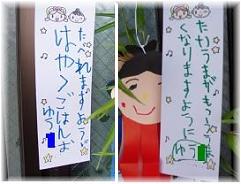 はやくごはんお
たべれますように
ゆう
たけうまがもっとうま
くなりますように
ゆう